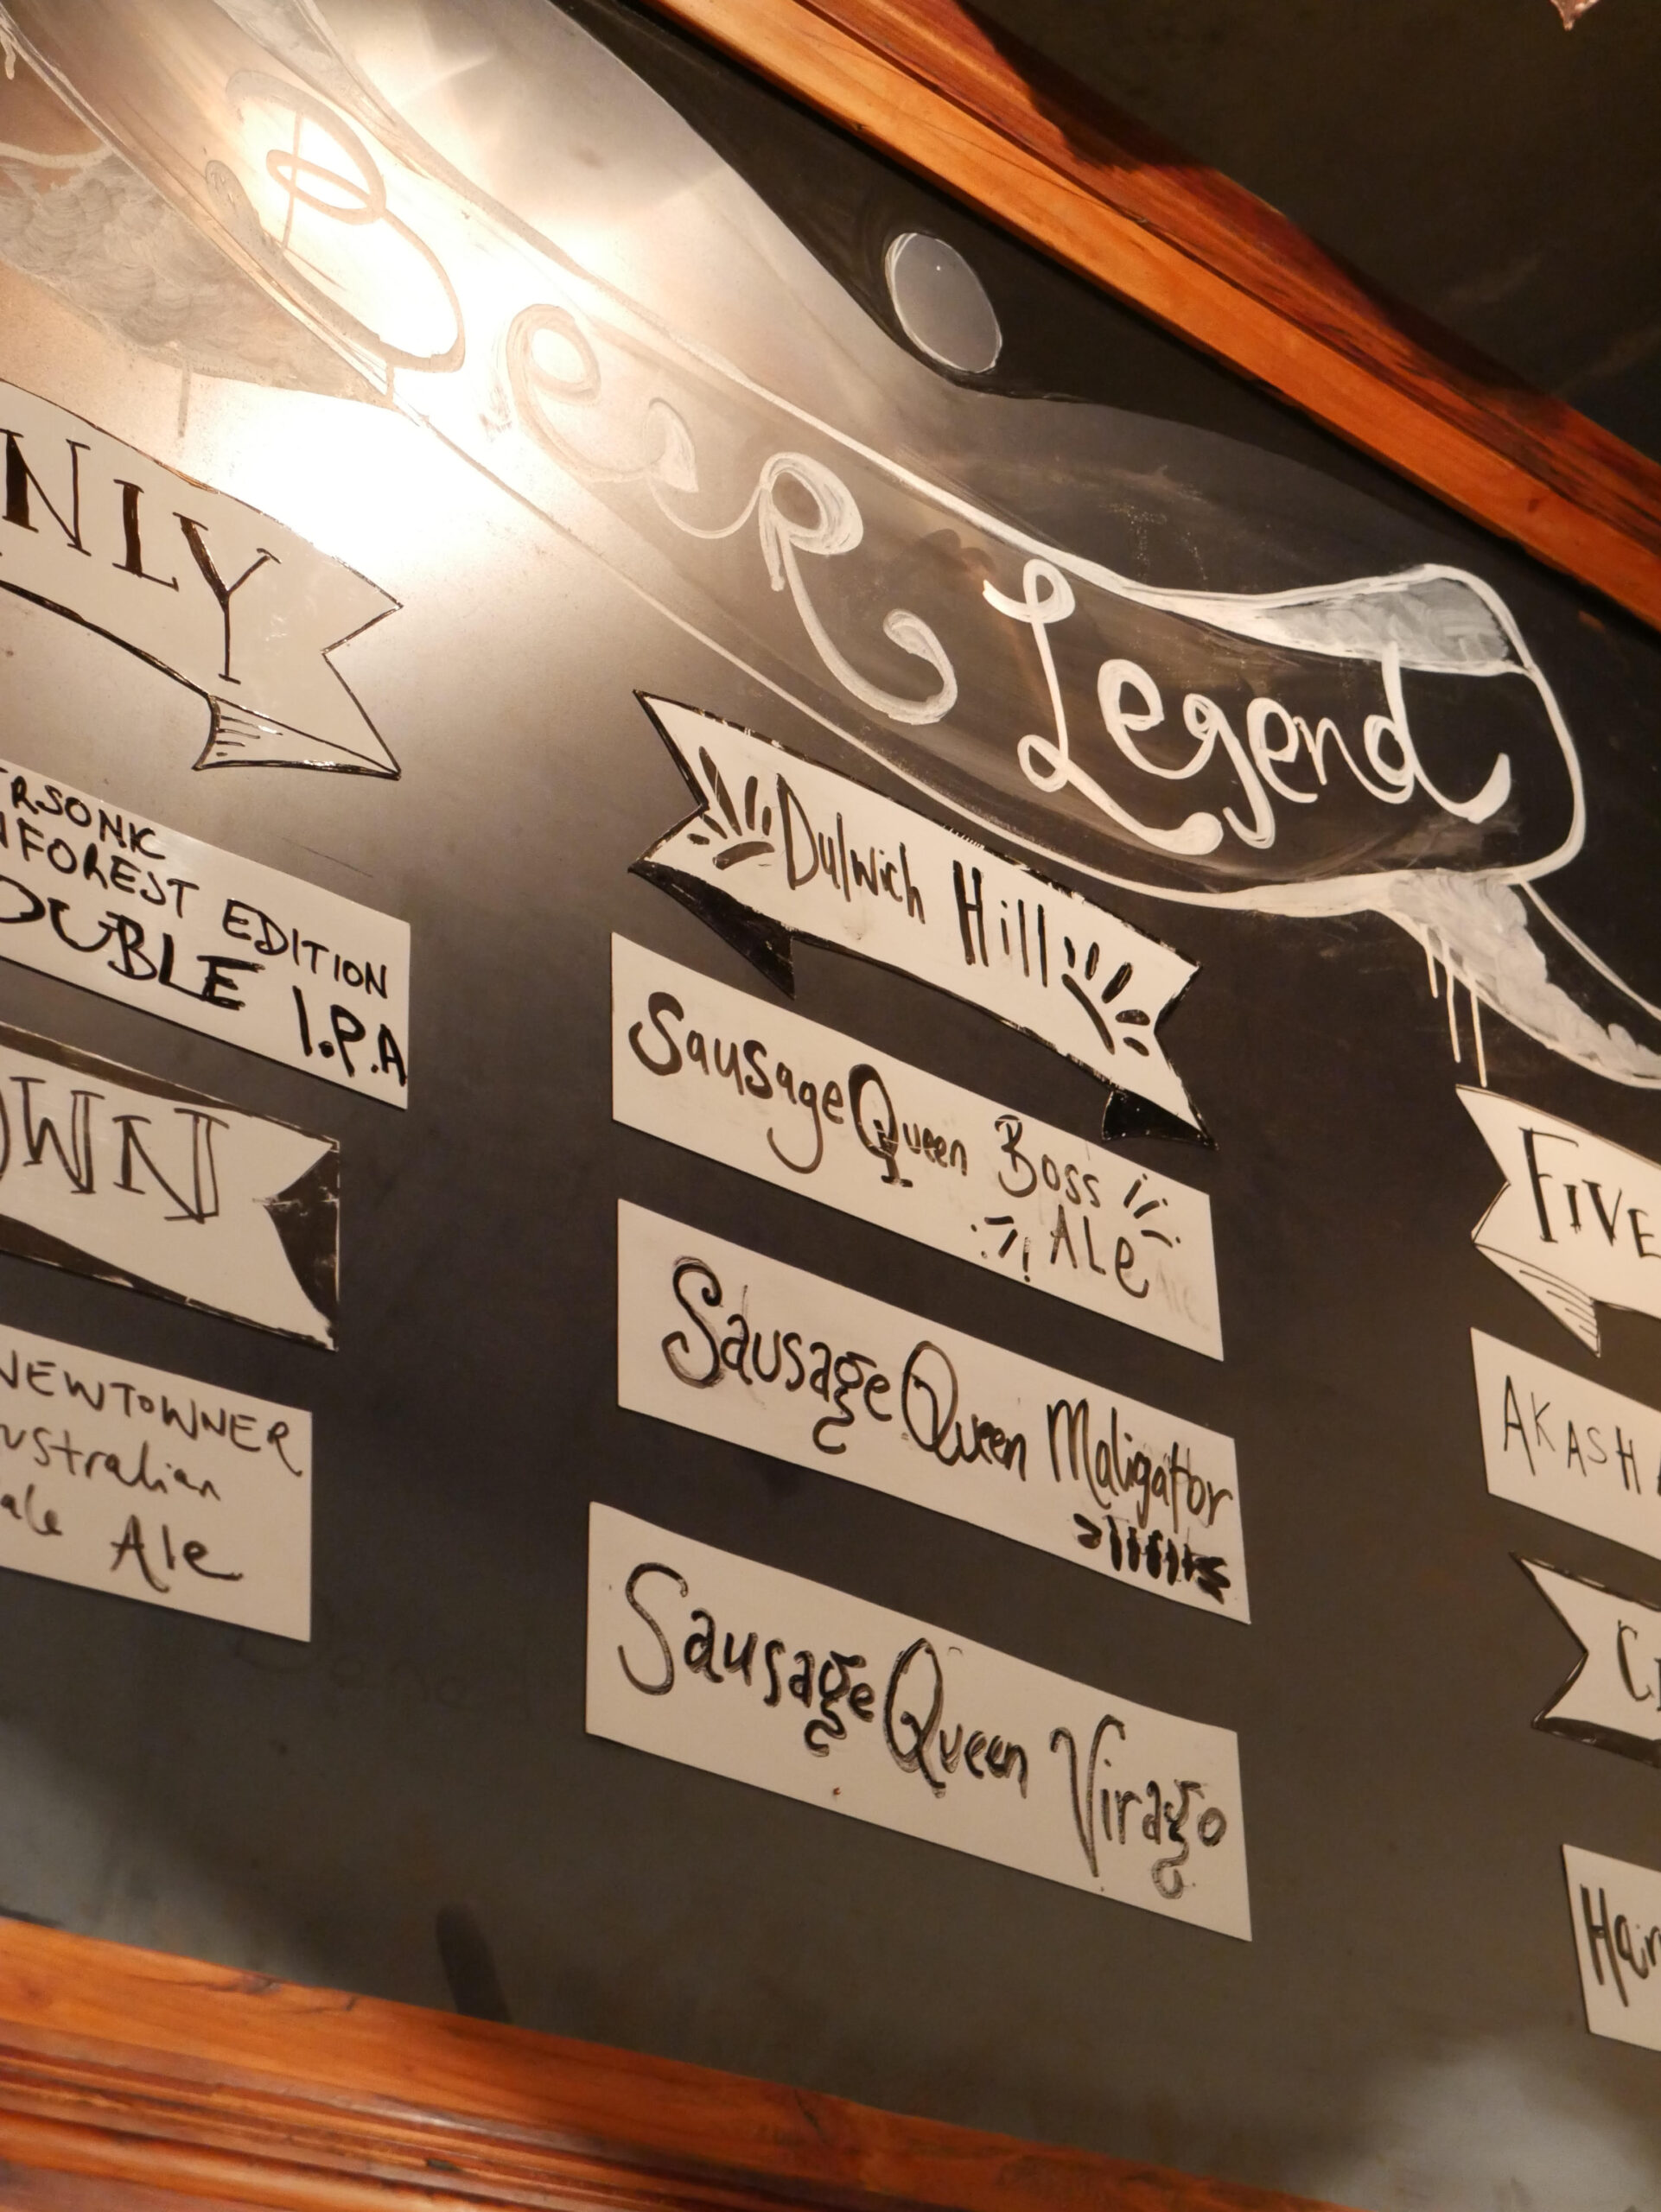 BeeR Legend
NLY
RSONIC
FOREST EDITION
OUBLE I.P.A
OWN
NEWTOWNER
ustralian
ale Ale
Dulwich Hill
Sausage Queen Boss
ALe
Sausage Queen Maligator
Sausage Queen Virago
FIVE
AKASHA
C
Hair